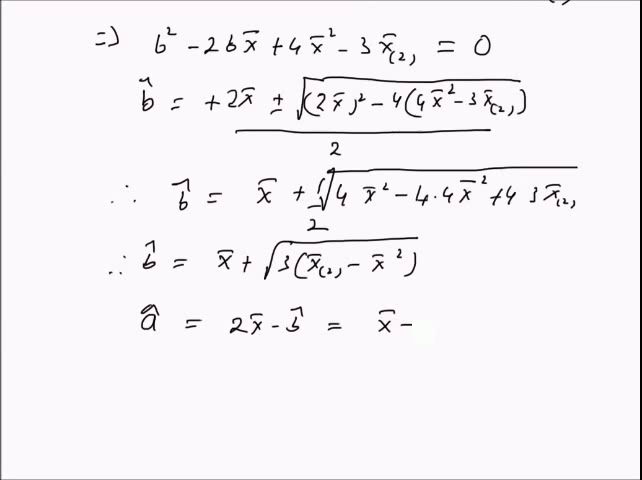 ⇒ b² - 2bx̄ + 4x̄² - 3x̄₍₂₎ = 0
b̂ = +2x̄ ± √((2x̄)² - 4(4x̄² - 3x̄₍₂₎)) / 2
∴ b̂ = x̄ + 1/2 √(4x̄² - 4·4x̄² + 4 3x̄₍₂₎)
∴ b̂ = x̄ + √(3(x̄₍₂₎ - x̄²))
â = 2x̄ - b̂ = x̄ -